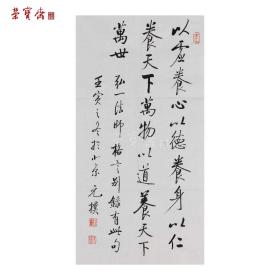 荣宝斋
以虚养心以德养身以仁
養天下萬物以道養天下
萬世
弘一法師格言别錄有此句
壬寅之冬於北京元樸